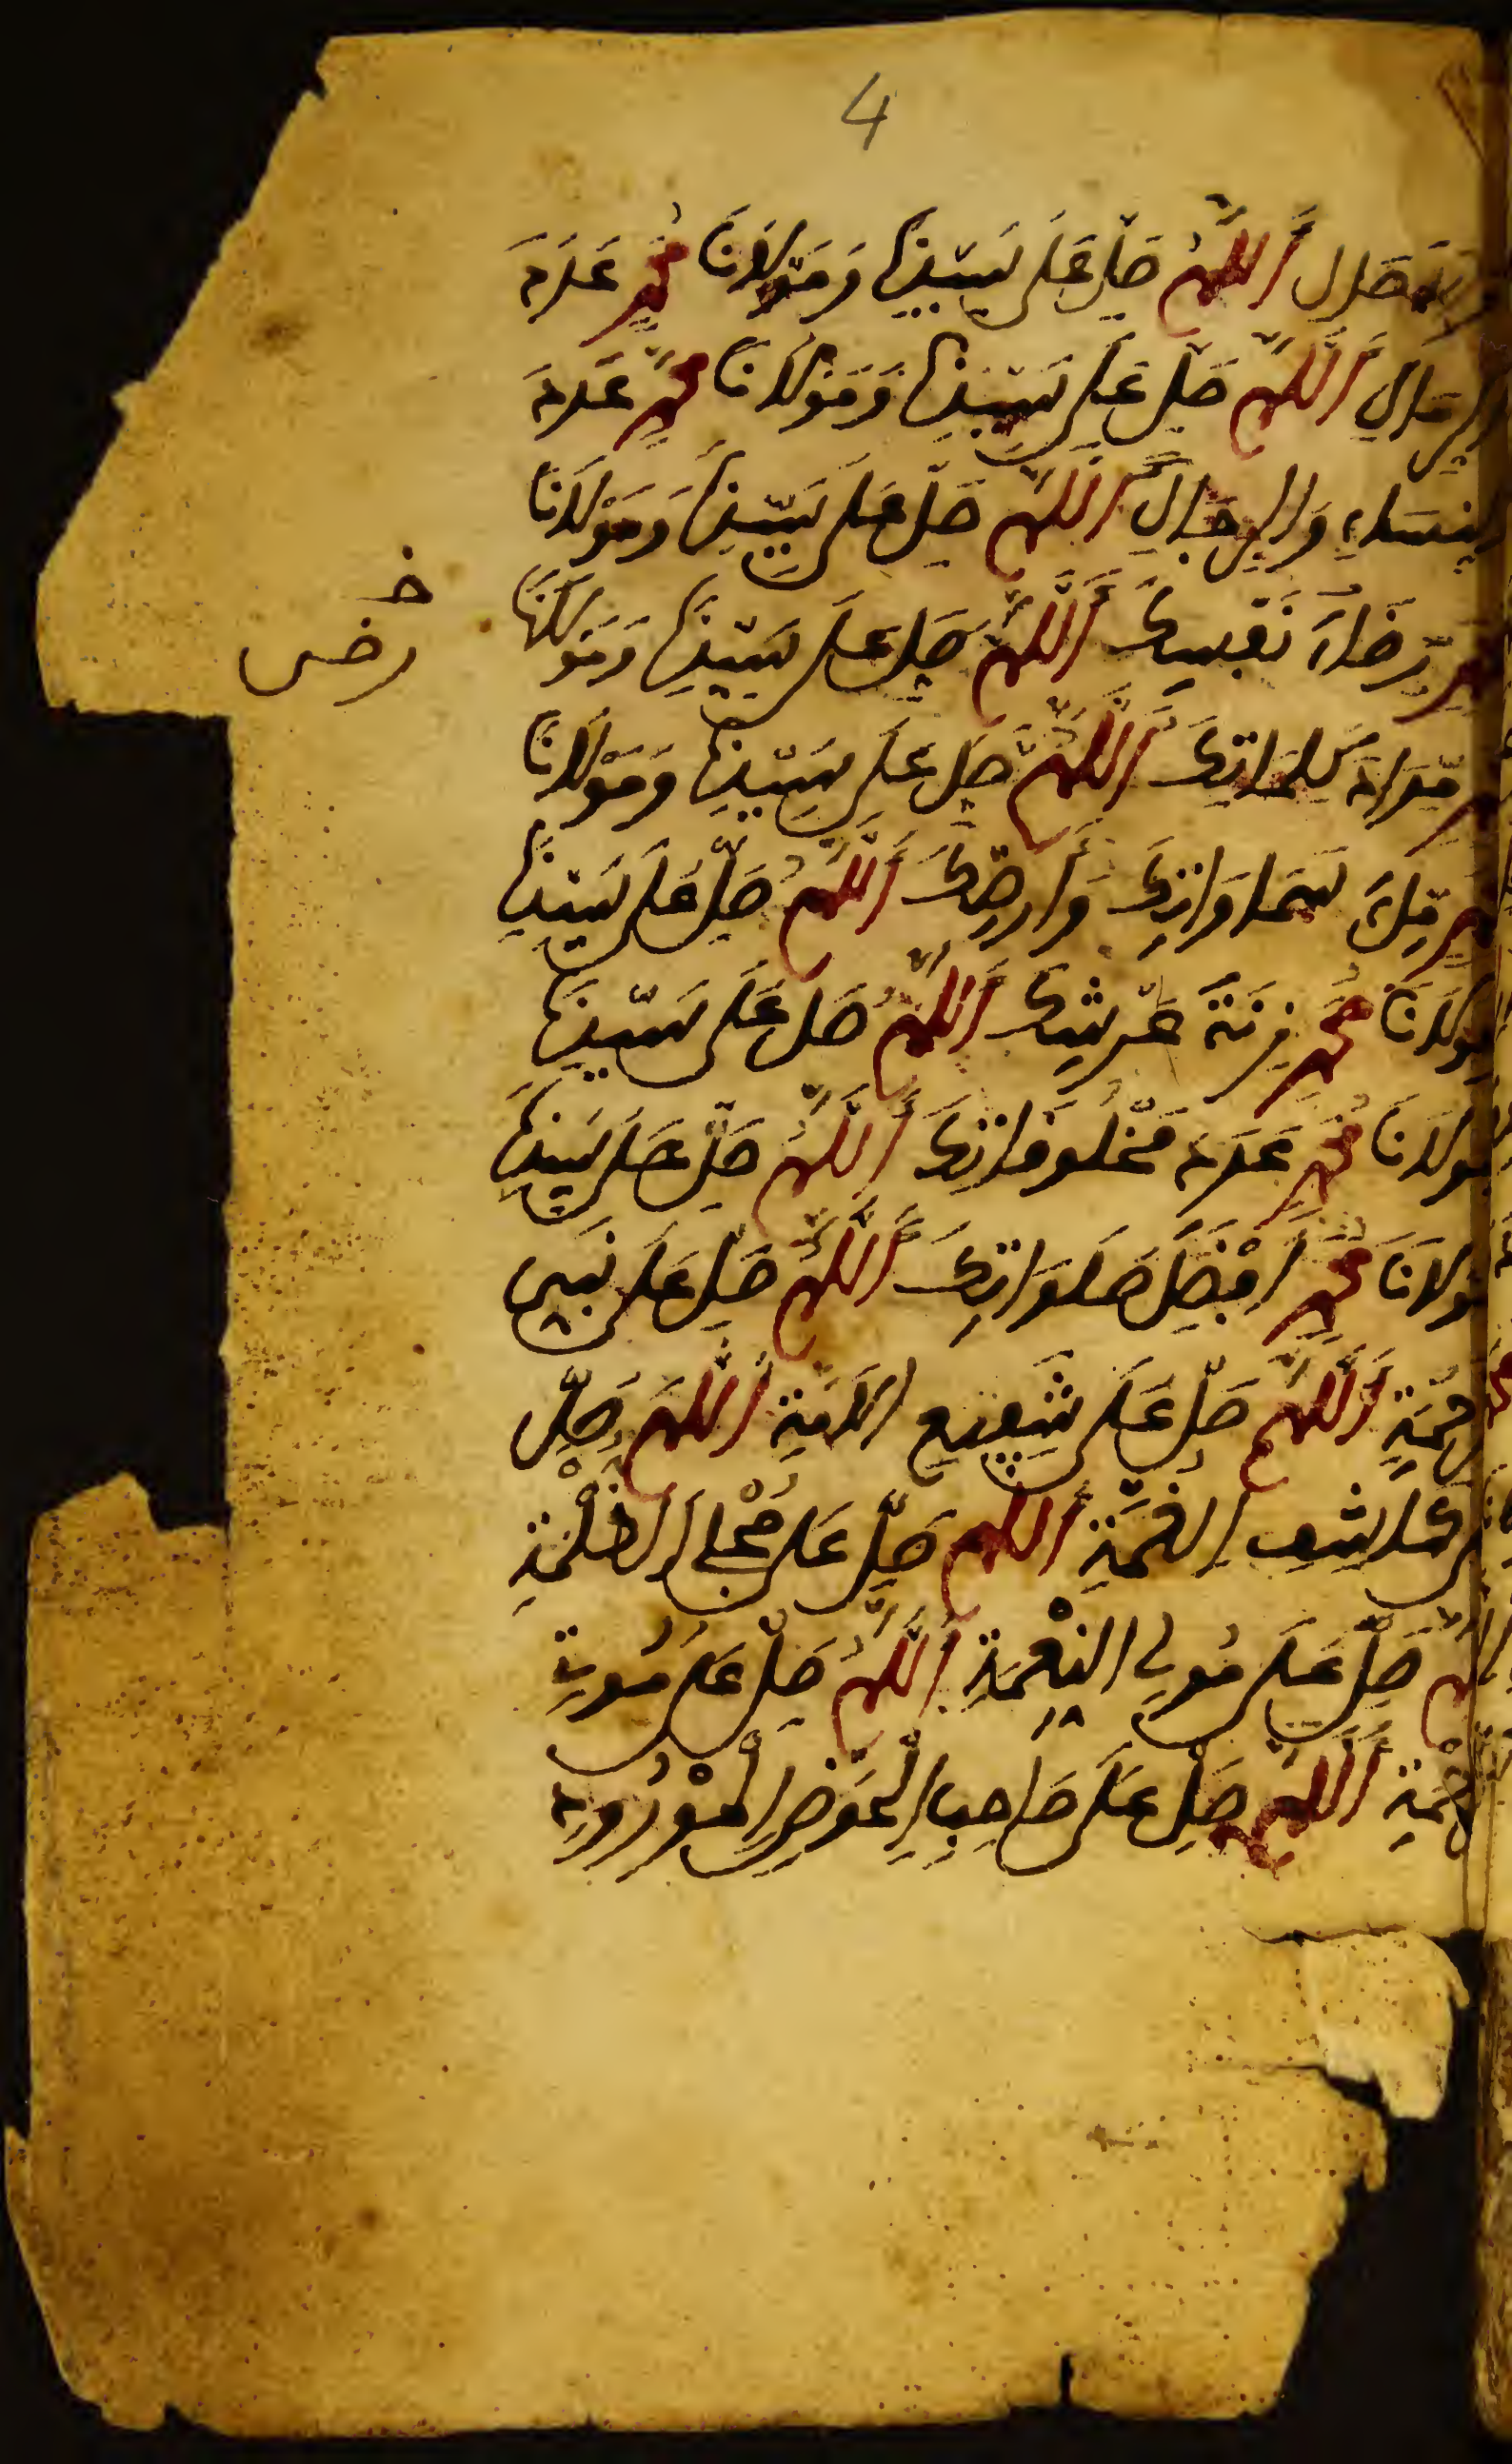 4
اللهم صل على سيدنا ومولانا محمد عدد
الرمال اللهم صل على سيدنا ومولانا محمد عدد
النساء والرجال اللهم صل على سيدنا ومولانا
محمد رضاء نفسك اللهم صل على سيدنا ومولانا
خ
رضى
محمد مداد كلماتك اللهم صل على سيدنا ومولانا
محمد ملء سماواتك وأرضك اللهم صل على سيدنا
ومولانا محمد زنة عرشك اللهم صل على سيدنا
ومولانا محمد عدد مخلوقاتك اللهم صل على سيدنا
ومولانا محمد أفضل صلواتك اللهم صل على نبي
الرحمة اللهم صل على شفيع الامة اللهم صل
على كاشف الغمة اللهم صل على مجلي الظلمة
اللهم صل على مولي النعمة اللهم صل على موتي
الرحمة اللهم صل على صاحب الحوض المورود